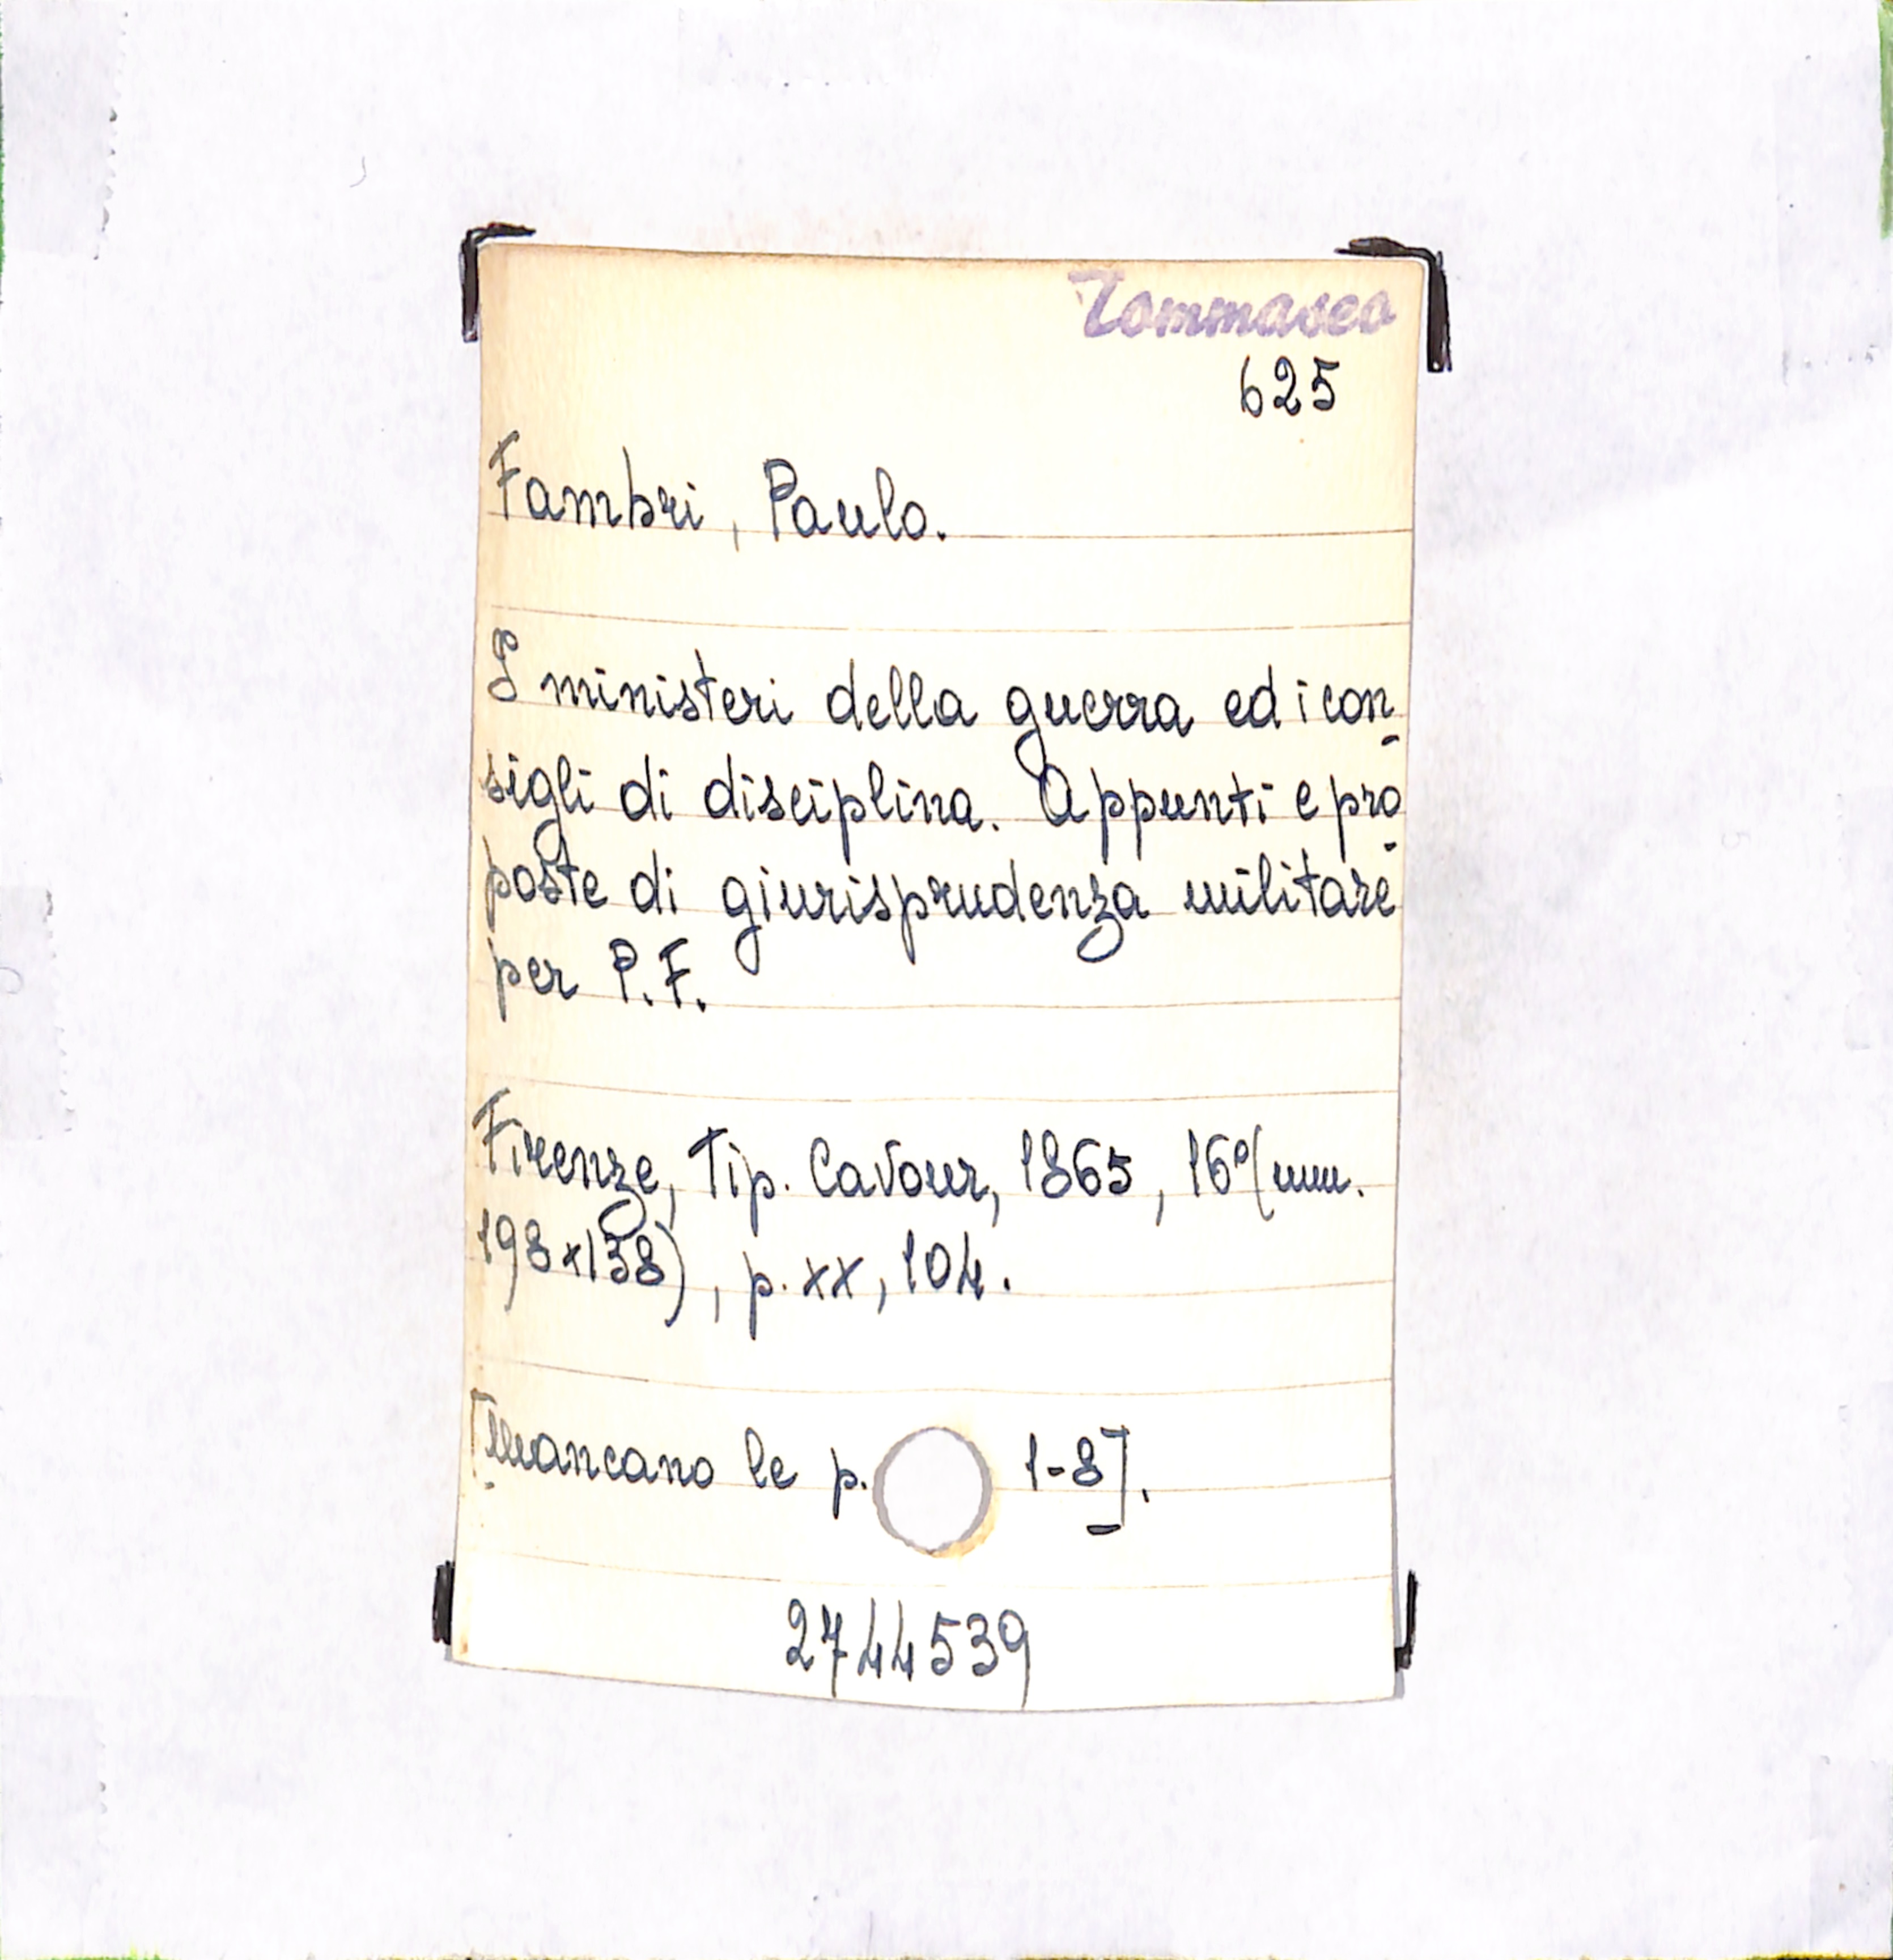 Tommaseo
625
Fambri, Paulo.
I ministeri della guerra ed i con-
sigli di disciplina. Appunti e pro-
poste di giurisprudenza militare
per P.F.
Firenze, Tip. Cavour, 1865, 16°(mm.
198x138), p. xx, 104.
[Mancano le p. 1-8].
2744539